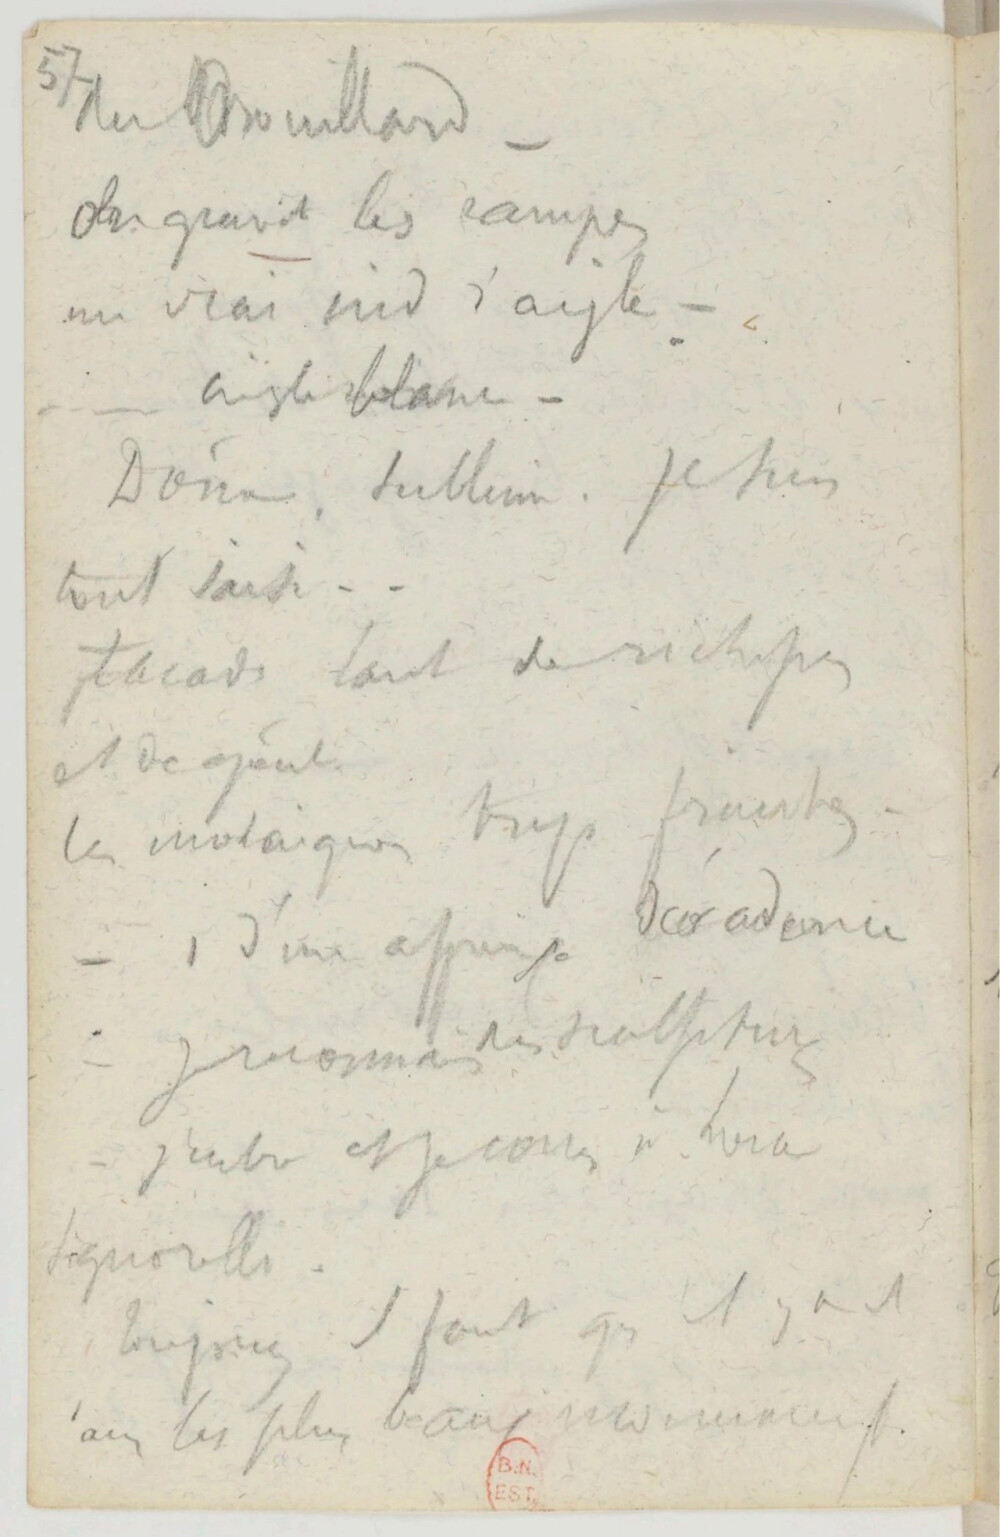 57
du Brouillard -
On gravit les rampes
un vrai nid d'aigle -
aigle blanc -
Dôme, sublime. Je suis
tout saisi - -
façade tant de richesses
et de goût.
les mosaiques trop fraiches -
- d'une affreuse décadence
- Je reconnais des sculptures
- j'entre et je cours à Luca
Signorelli.
Toujours il faut qu'il y ait
dans les plus beaux monument
B.N.
EST.